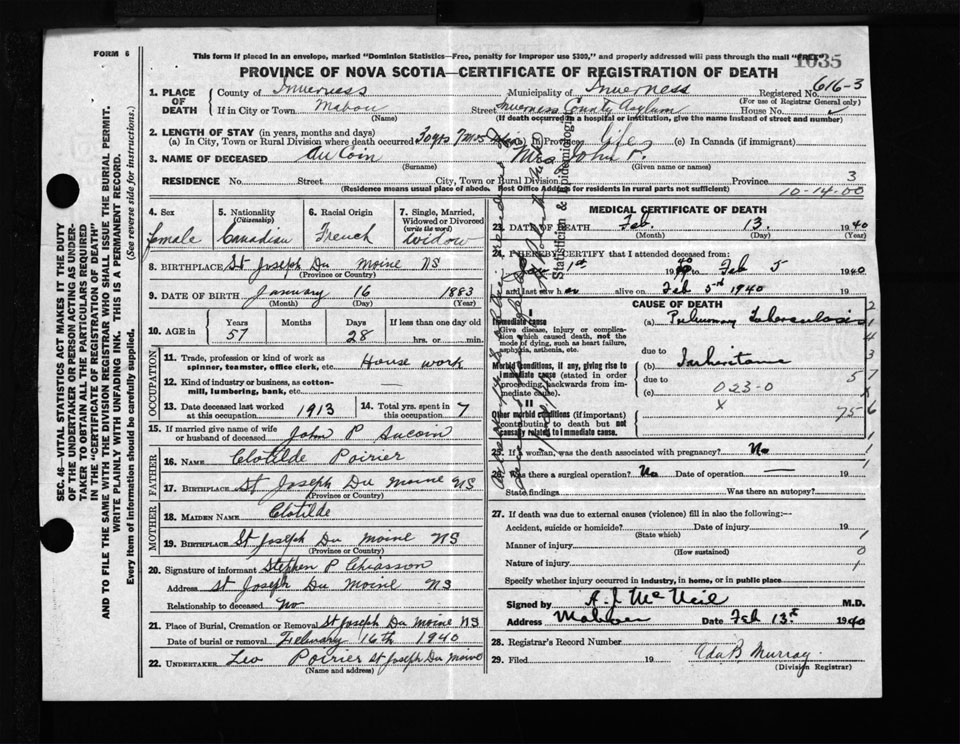 FORM 6
This form if placed in an envelope, marked "Dominion Statistics—Free, penalty for improper use $300," and properly addressed will pass through the mail "FREE"
1035
PROVINCE OF NOVA SCOTIA—CERTIFICATE OF REGISTRATION OF DEATH
616-3
1. PLACE OF DEATH
County of Inverness Municipality of Inverness Registered No.
(For use of Registrar General only)
If in City or Town Mabou Street Inverness County Asylum House No.
(Name) (If death occurred in a hospital or institution, give the name instead of street and number)
2. LENGTH OF STAY (in years, months and days)
(a) In City, Town or Rural Division where death occurred 20 yrs 7 mos In Province life (c) In Canada (if immigrant)
3. NAME OF DECEASED AuCoin Mrs John P.
(Surname) (Given name or names)
RESIDENCE No. Street City, Town or Rural Division Province 3
(Residence means usual place of abode. Post Office Address for residents in rural parts not sufficient) 10-14-00
4. Sex female
5. Nationality (Citizenship) Canadian
6. Racial Origin French
7. Single, Married, Widowed or Divorced (write the word) widow
8. BIRTHPLACE St Joseph Du Moine NS
(Province or Country)
9. DATE OF BIRTH January 16 1883
(Month) (Day) (Year)
10. AGE in Years Months Days If less than one day old
57 28 hrs. or min.
OCCUPATION
11. Trade, profession or kind of work as spinner, teamster, office clerk, etc. House work
12. Kind of industry or business, as cotton-mill, lumbering, bank, etc. —
13. Date deceased last worked at this occupation 1913
14. Total yrs. spent in this occupation 7
15. If married give name of wife or husband of deceased John P Aucoin
FATHER
16. NAME Clotilde Poirier
17. BIRTHPLACE St Joseph Du Moine NS
(Province or Country)
MOTHER
18. MAIDEN NAME Clotilde
19. BIRTHPLACE St Joseph Du Moine NS
(Province or Country)
20. Signature of informant Stephen P Chiasson
Address St Joseph Du Moine NS
Relationship to deceased No
21. Place of Burial, Cremation or Removal St Joseph Du Moine NS
Date of burial or removal February 16th 1940
22. UNDERTAKER Leo Poirier St Joseph Du Moine
(Name and address)
MEDICAL CERTIFICATE OF DEATH
23. DATE OF DEATH Feb. 13. 1940
(Month) (Day) (Year)
24. I HEREBY CERTIFY that I attended deceased from:
1st 1940 to Feb 5 1940
and last saw her alive on Feb 5th 1940 19
CAUSE OF DEATH
Immediate cause
Give disease, injury or complication which caused death, not the mode of dying, such as heart failure, asphyxia, asthenia, etc.
(a) Pulmonary Tuberculosis
due to
Morbid conditions, if any, giving rise to immediate cause (stated in order proceeding backwards from immediate cause).
(b) Inheritance
due to
(c) 023-0
x
II
Other morbid conditions (if important) contributing to death but not causally related to immediate cause.
25. If a woman, was the death associated with pregnancy? No
26. Was there a surgical operation? No Date of operation — 19
State findings Was there an autopsy?
27. If death was due to external causes (violence) fill in also the following:—
Accident, suicide or homicide? Date of injury 19
(State which)
Manner of injury
(How sustained)
Nature of injury
Specify whether injury occurred in industry, in home, or in public place
Signed by A. J. McNeil M.D.
Address Mabou Date Feb 13th 1940
28. Registrar's Record Number
29. Filed 19 Ada B Murray
(Division Registrar)
Statistician & Epidemiologist
SEC. 46—VITAL STATISTICS ACT MAKES IT THE DUTY OF THE UNDERTAKER OR PERSON ACTING AS UNDERTAKER TO OBTAIN ALL THE PARTICULARS REQUIRED IN THE "CERTIFICATE OF REGISTRATION OF DEATH" AND TO FILE THE SAME WITH THE DIVISION REGISTRAR WHO SHALL ISSUE THE BURIAL PERMIT.
WRITE PLAINLY WITH UNFADING INK. THIS IS A PERMANENT RECORD.
Every item of information should be carefully supplied. (See reverse side for instructions.)